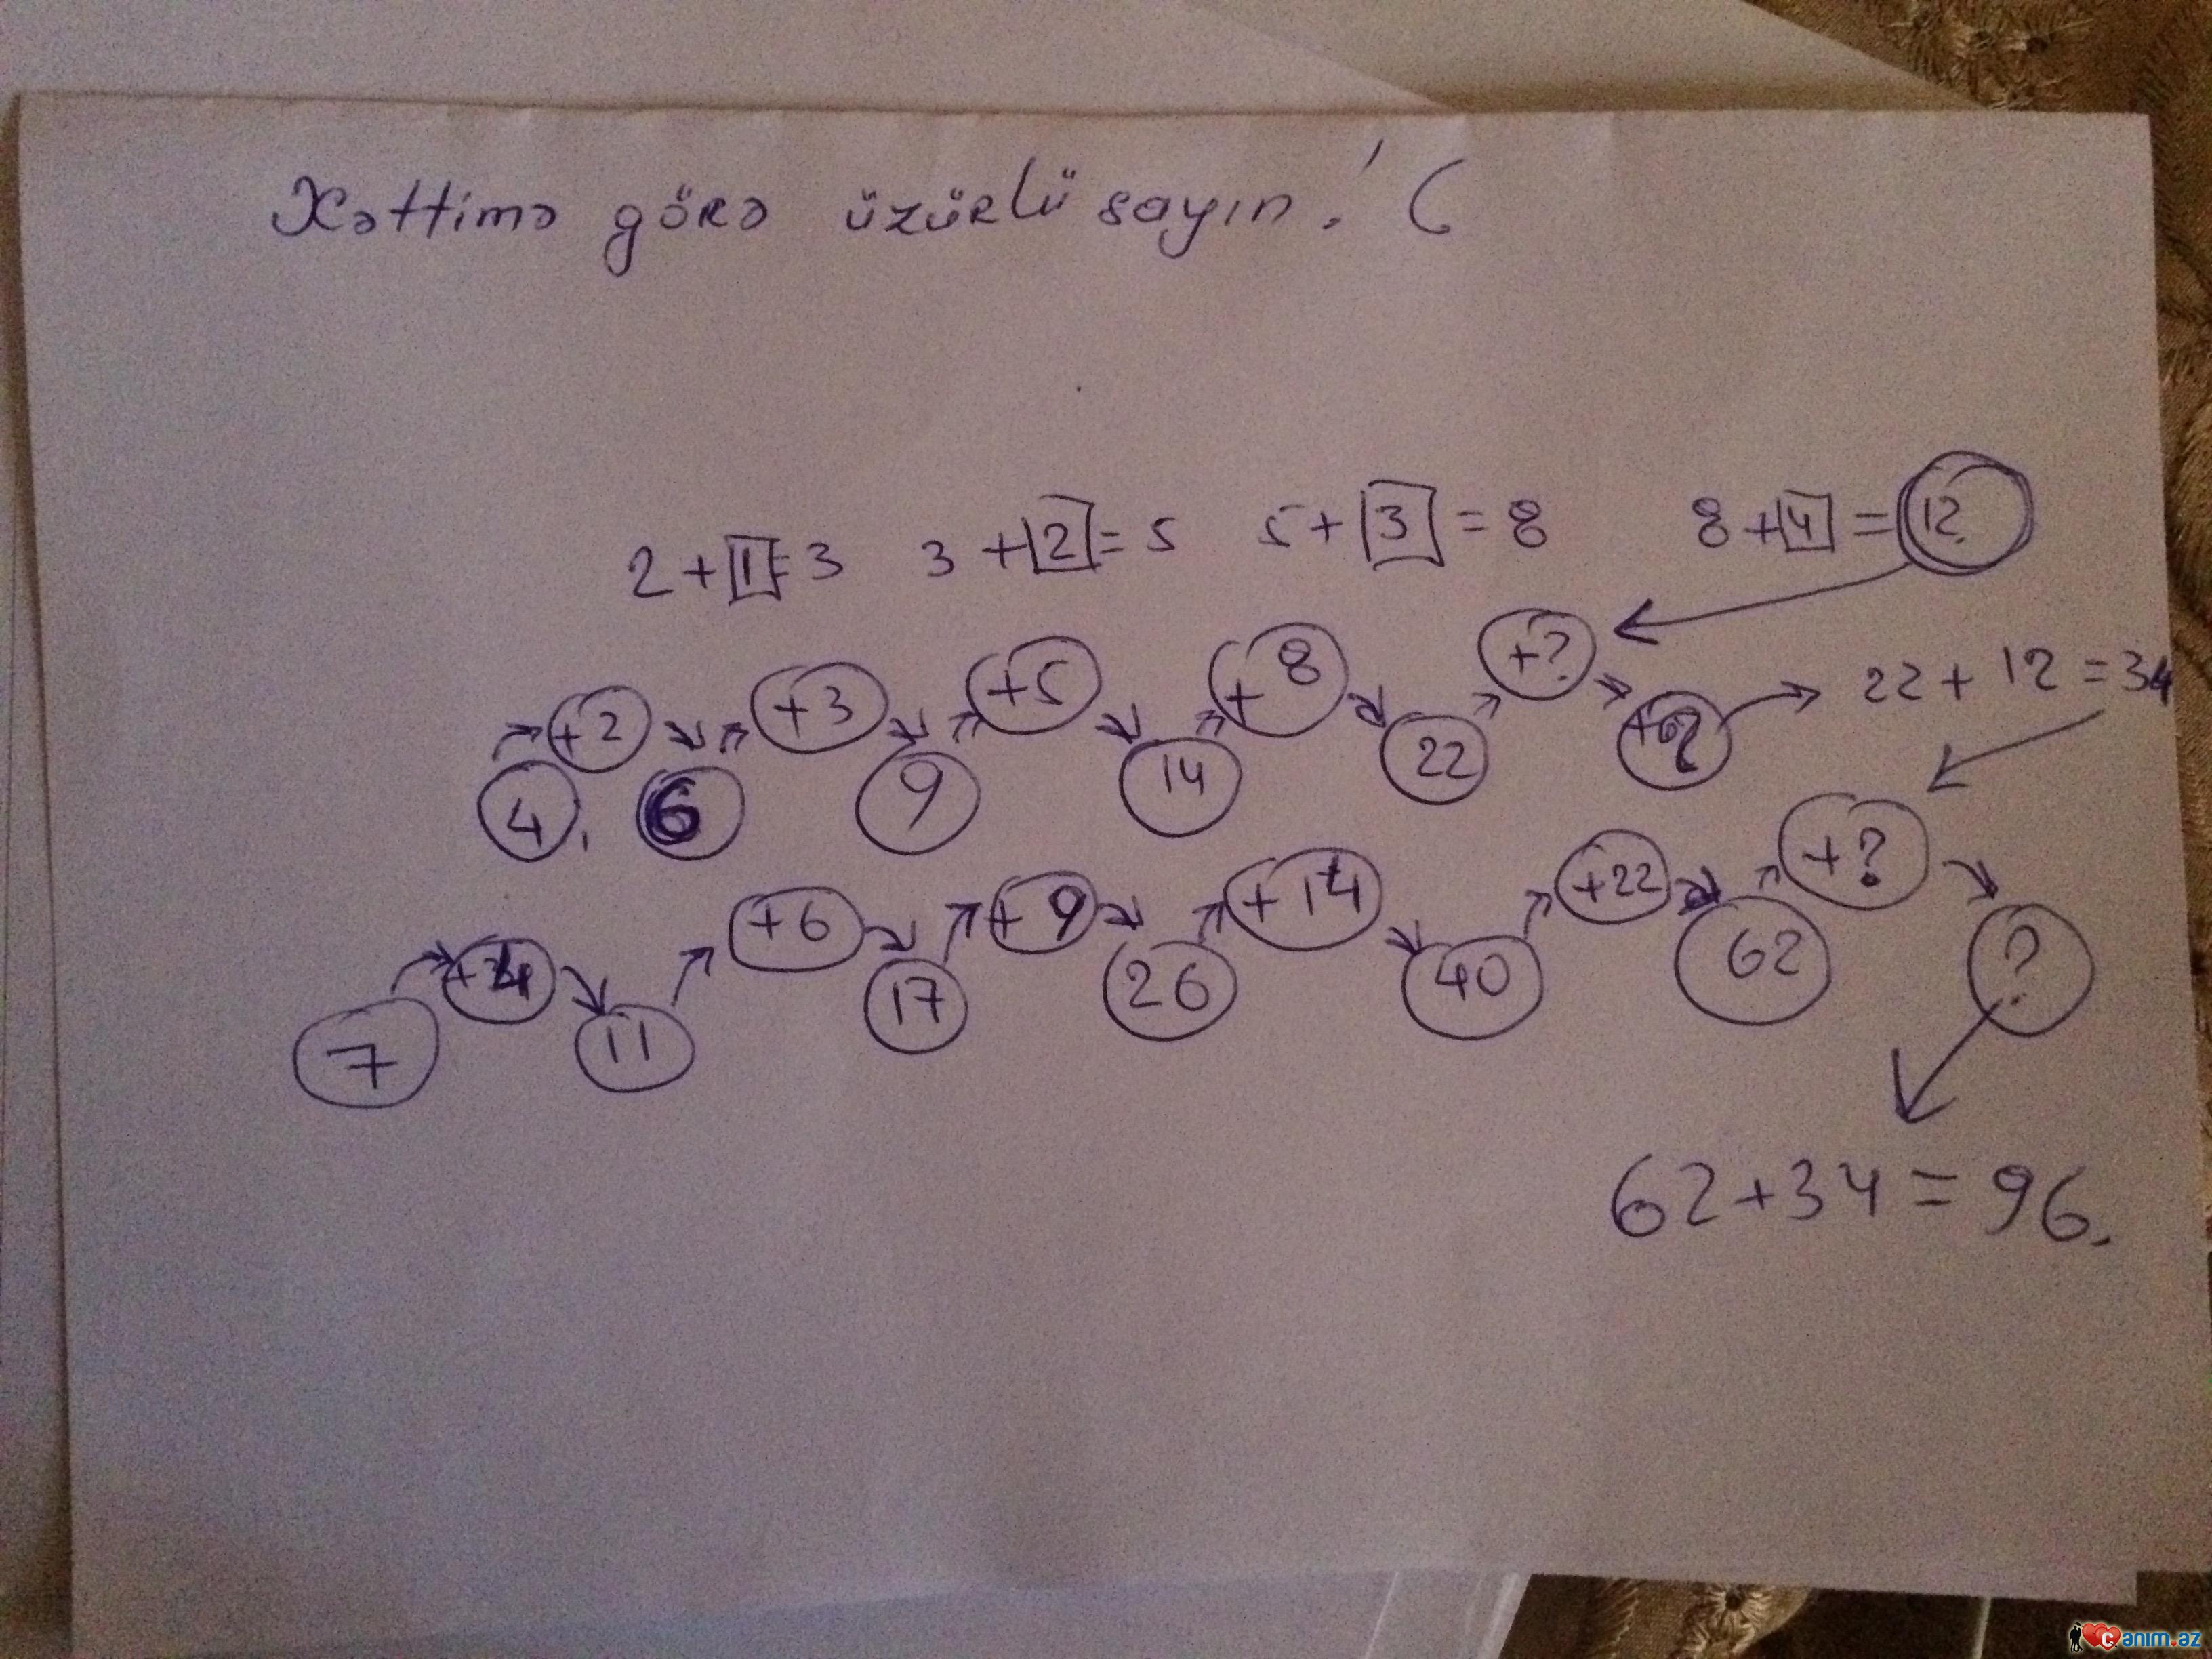 Xəttimə görə üzürlü sayın! (
2 + 1 = 3 3 + 2 = 5 5 + 3 = 8 8 + 4 = 12
+2 +3 +5 +8 +? 22 + 12 = 34
4, 6 9 14 22
+4 +6 +9 +14 +22 +?
7 11 17 26 40 62 ?
62 + 34 = 96.
canim.az